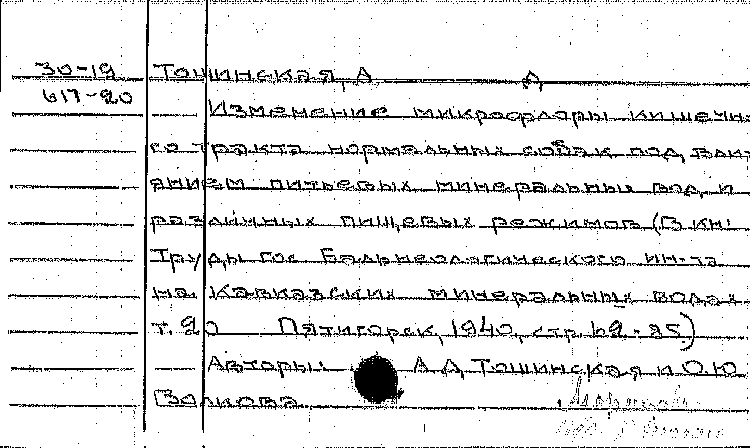 30-19 Тошинская, А. Д.
617-20 Изменение микрофлоры кишечно
го тракта нормальных собак под влия
янием питьевых минеральных вод и
различных пищевых режимов (В кн:
Труды Гос Бальнеологического ин-та
на Кавказских минеральных водах
т. 20 Пятигорск, 1940, стр 62-85)
Авторы: А Д Тошинская и О.Ю.
Волкова